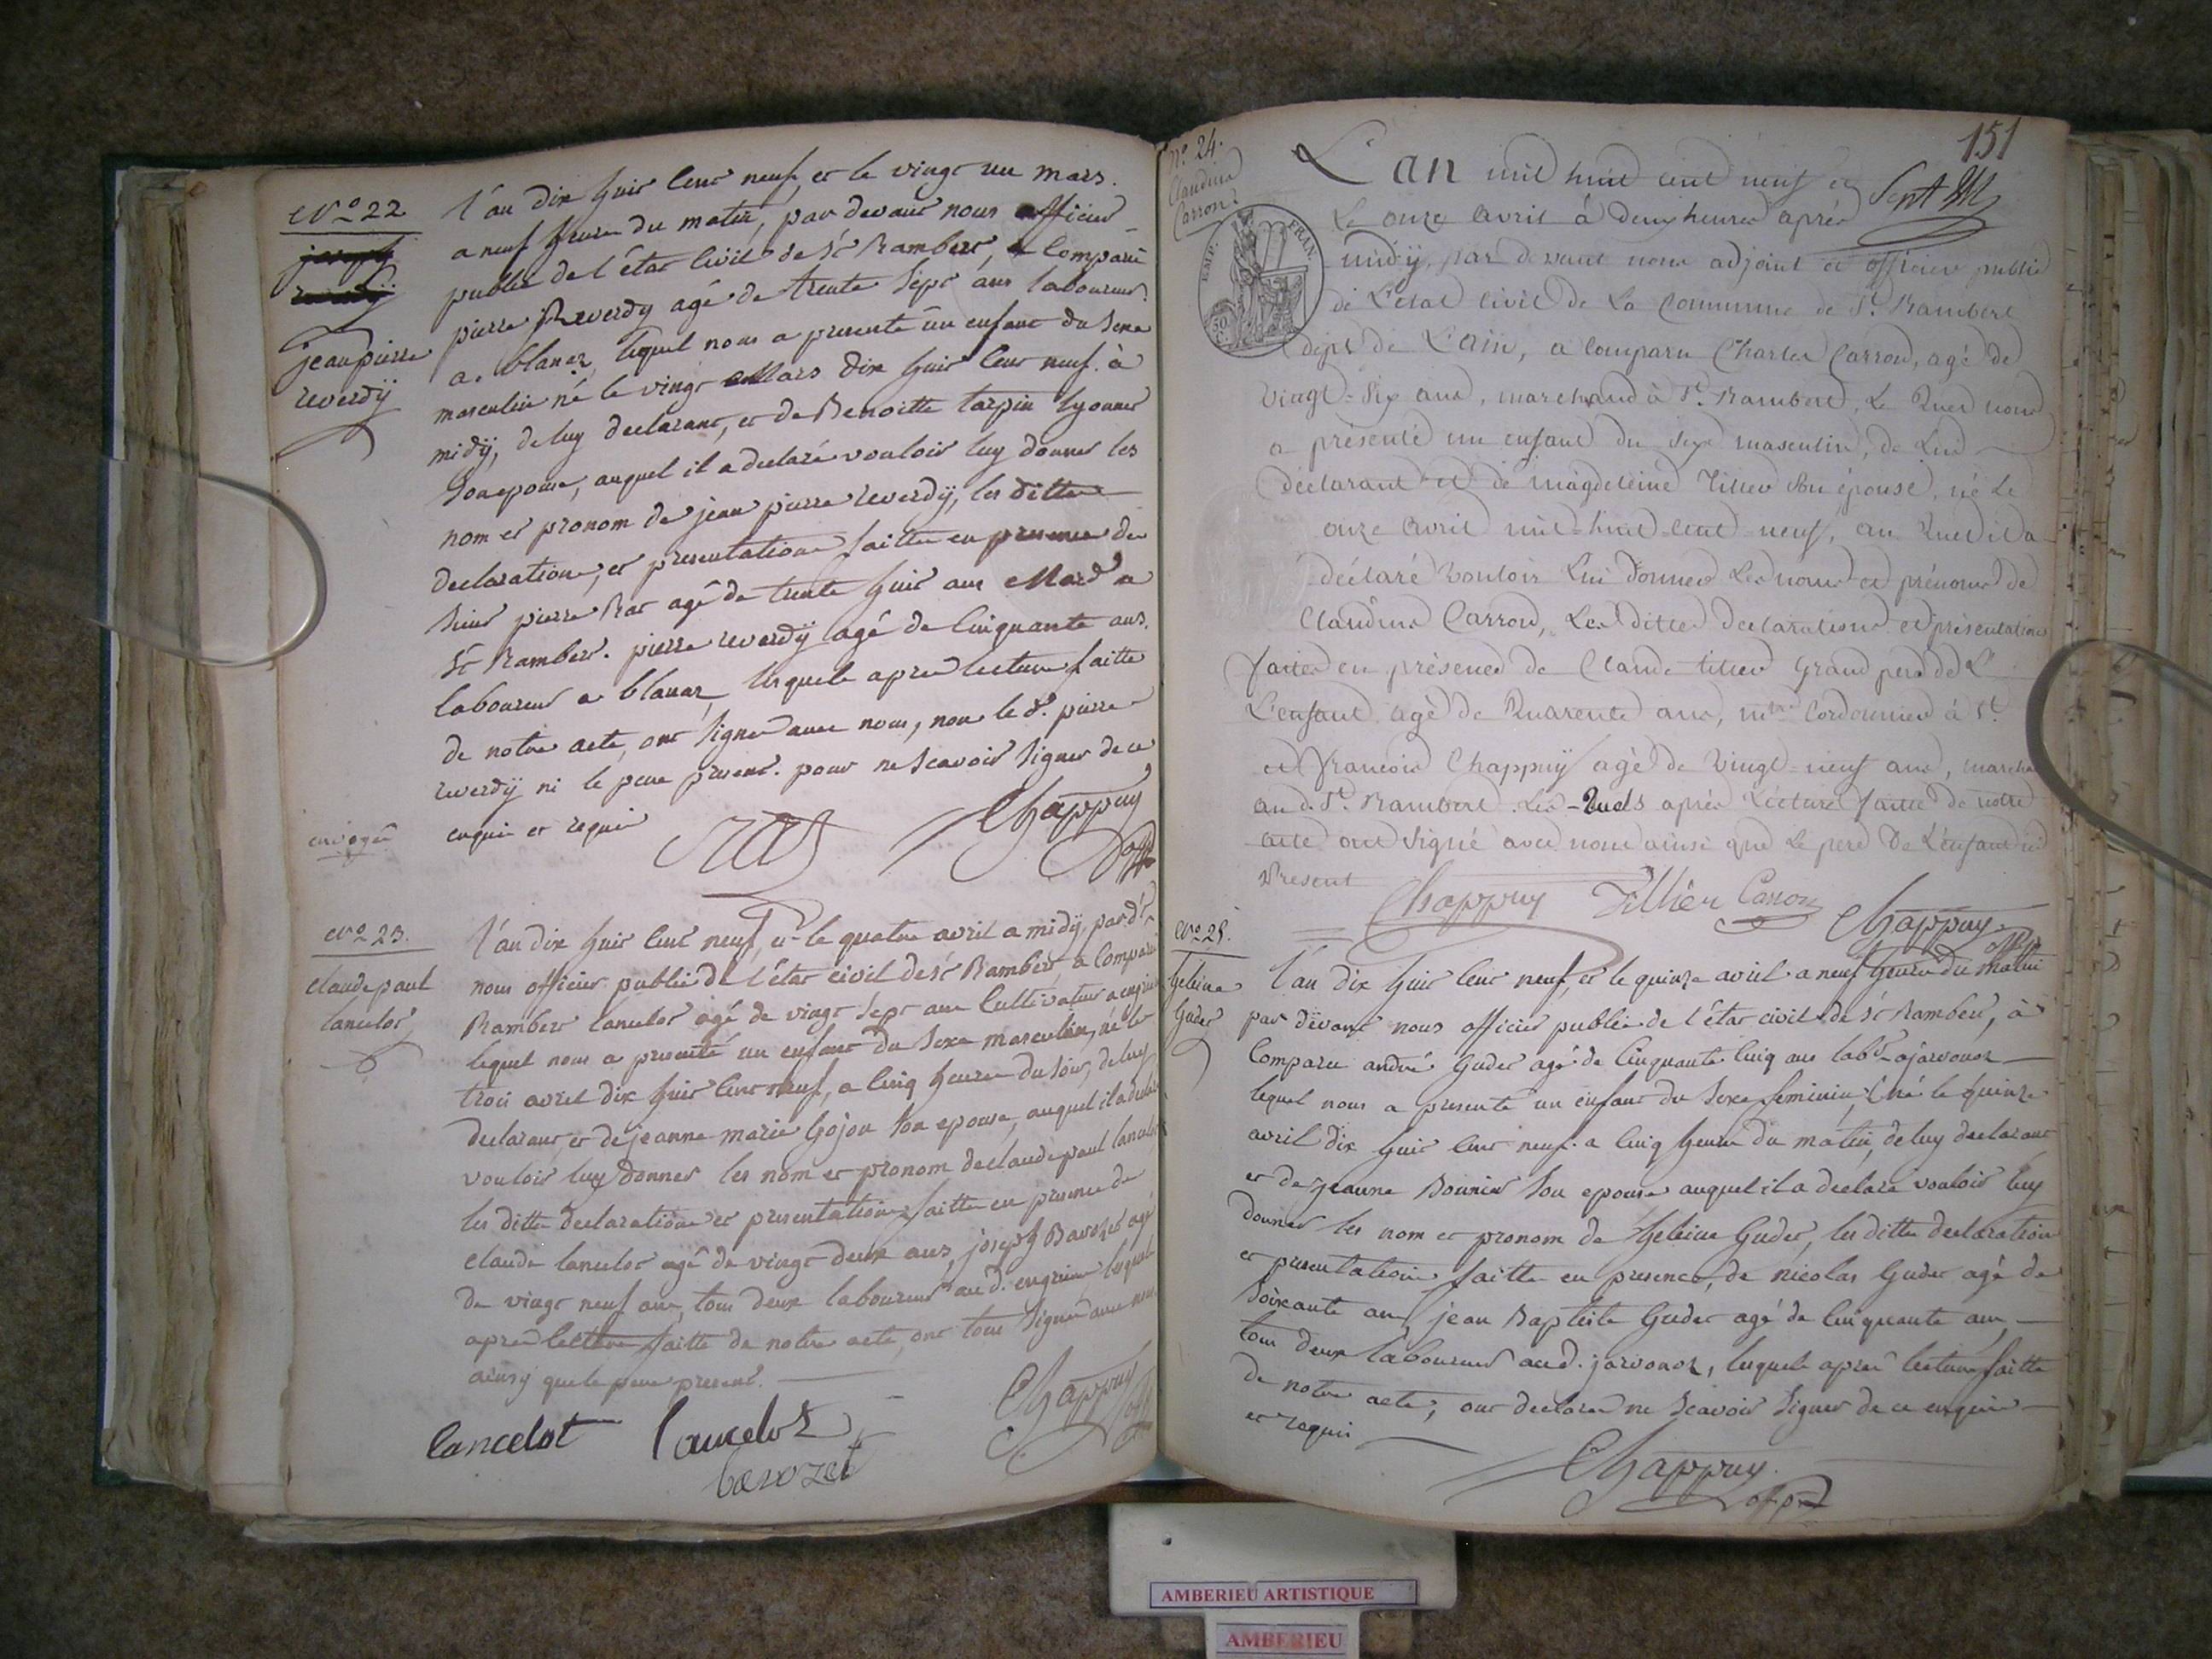 N.o 22
jean pierre
reverdÿ
l'an dix huit cent neuf, et le vingt un mars.
a neuf heure du matin, par devant nous officier
public de l'état civil de St Rambert, a comparu
pierre Reverdy agé de trente sept ans laboureur
a blanaz, lequel nous a presenté un enfant du sexe
masculin né le vingt Mars dix huit cent neuf. à
midÿ, de luy declarant, et de Benoitte tarpin lyonner
son epouse, auquel il a declaré vouloir luy donner les
nom et pronom de jean pierre reverdÿ, les ditte
declaration, et presentation faitte en presence de
sieur pierre Rat agé de trente huit ans Mard a
St Rambert. pierre reverdÿ agé de cinquante ans.
laboureur a blanaz, lesquels apres lecture faitte
de notre acte, ont signer avec nous, non le d. pierre
reverdÿ ni le pere present. pour ne scavoir signer de ce
enquis et requis
Chappuy
off
N.o 23.
claude paul
lancelot
l'an dix huit cent neuf, et le quatre avril a midÿ, par dt
nous officier public de l'état civil de St Rambert a comparu
Rambert lancelot agé de vingt sept ans cultivateur a
lequel nous a presenté un enfant du sexe masculin, né le
trois avril dix huit cent neuf, a cinq heure du soir, de luy
declarant, et de jeanne marie Gojon son epouse, auquel il a declaré
vouloir luy donner les nom et pronom de claude paul lancelot
les ditte declaration et presentation faitte en presence de
claude lancelot agé de vingt deux ans, joseph Barozet agé
de vingt neuf ans, tous deux laboureur aud. lesquels
apres lecture faitte de notre acte, ont tous signer avec nous
ainsy que le pere present.
Chappuy
off
lancelot lancelot
barozet
151
N.o 24.
Claudine
Carron
EMP. FRAN.
50
C.
L'an mil huit cent neuf et
Le onze avril à deux heures après
midÿ, par devant nous adjoint et officier public
de L'état civil de La Commune de St. Rambert
dépt de L'ain, a comparu Charles Carron, agé de
Vingt-six ans, marchand à St. Rambert, Le Quel nous
a présenté un enfant du sexe masculin, de Lui
déclarant et de magdeleine Tillier son épouse, né Le
onze avril mil-huit-cent-neuf, au Quel il a
déclaré vouloir Lui donner Les noms et prénoms de
Claudine Carron, Les dittes declarations et présentations
faites en présence de Claude tillier Grand pere de L'
L'enfant agé de Quarente ans, mtre Cordonnier à St.
et francois Chappuÿ agé de Vingt-neuf ans, marchand
au d. St. Rambert. Les-Quels après Lecture faitte de notre
acte ont signé avec nous ainsi que Le pere De L'enfant
Present
Chappuy Tillier Carron Chappuy
N.o 25.
heleine
Guder
l'an dix huit cent neuf, et le quinze avril a neuf heure du matin
par devant nous officier public de l'état civil de St Rambert, à
comparu andré Guder agé de cinquante cinq ans labr a javornoz
lequel nous a presenté un enfant du sexe feminin, né le quinze
avril dix huit cent neuf. a cinq heure du matin, de luy declarant
et de jeanne Bonnier son epouse auquel il a declaré vouloir luy
donner les nom et pronom de heleine Guder, les ditte declaration
et presentation faitte en presence, de nicolas Guder agé de
soixante ans, jean Baptiste Guder agé de cinquante ans,
tous deux laboureur aud. javornoz, lesquels apres lecture faitte
de notre acte, ont declaré ne scavoir signer de ce enquis
et requis
Chappuy.
AMBERIEU ARTISTIQUE
AMBERIEU